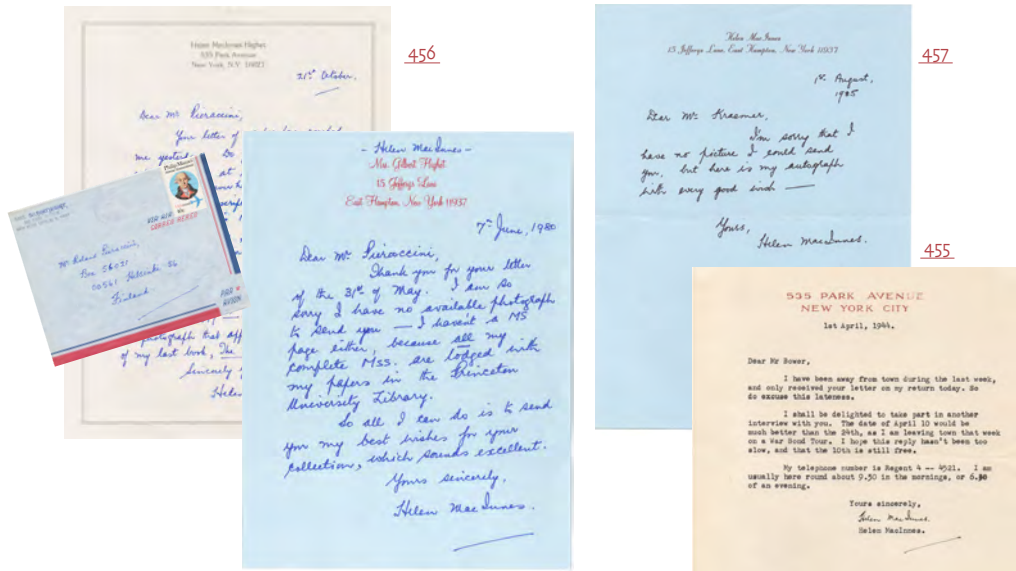 456
Helen MacInnes Highet
535 Park Avenue
New York, N.Y. 10021
21st October.
Dear Mr Pieraccini,
Your letter of
me yesterday. Do
at
photograph that app
of my last book, The
Sincerely
Helen
Philip Mazzei
VIA AIR MAIL
CORREO AEREO
Mr Roland Pieraccini,
Box 56031
00561 Helsinki 56
Finland
PAR AVION
- Helen MacInnes -
Mrs. Gilbert Highet
15 Jefferys Lane
East Hampton, New York 11937
7th June, 1980
Dear Mr Pieraccini,
Thank you for your letter
of the 31st of May. I am so
sorry I have no available photograph
to send you — I haven't a MS
page either, because all my
complete Mss. are lodged with
my papers in the Princeton
University Library.
So all I can do is to send
you my best wishes for your
collection, which sounds excellent.
Yours sincerely,
Helen MacInnes.
457
Helen MacInnes
15 Jefferys Lane, East Hampton, New York 11937
1st August,
1985
Dear Mr. Kraemer,
I'm sorry that I
have no picture I could send
you, but here is my autograph
with every good wish —
Yours,
Helen MacInnes.
455
535 PARK AVENUE
NEW YORK CITY
1st April, 1944.
Dear Mr Bower,
I have been away from town during the last week,
and only received your letter on my return today. So
do excuse this lateness.
I shall be delighted to take part in another
interview with you. The date of April 10 would be
much better than the 24th, as I am leaving town that week
on a War Bond Tour. I hope this reply hasn't been too
slow, and that the 10th is still free.
My telephone number is Regent 4 -- 4521. I am
usually here round about 9.30 in the mornings, or 6.30
of an evening.
Yours sincerely,
Helen MacInnes.
Helen MacInnes.